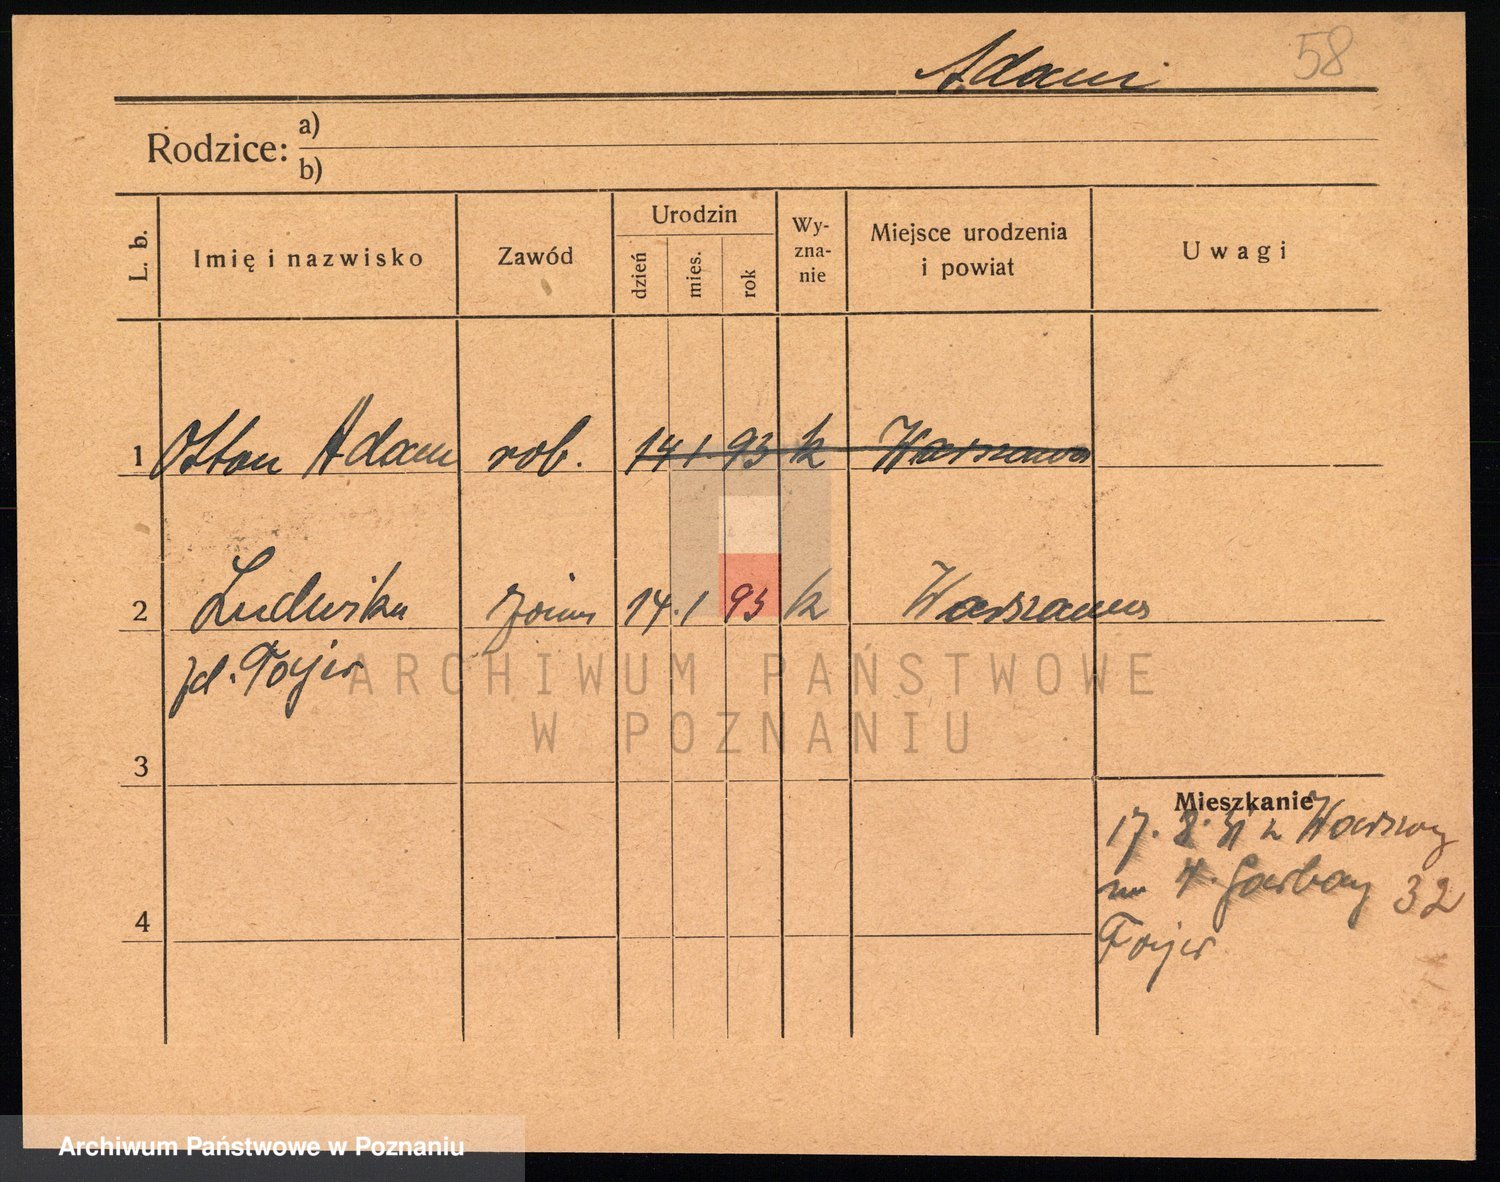 58
Adam
Rodzice: a)
b)
L. b. Imię i nazwisko Zawód Urodzin dzień mies. rok Wyznanie Miejsce urodzenia i powiat Uwagi
1 Otton Adam rob. 14 1 93 k Warszawa
2 Ludwika żona 14. 1 93 k Warszawa
zd. Fojer
ARCHIWUM PAŃSTWOWE
W POZNANIU
3
Mieszkanie
17. 8. z Warszawy
4. Garbary 32
4
Fojer
Archiwum Państwowe w Poznaniu